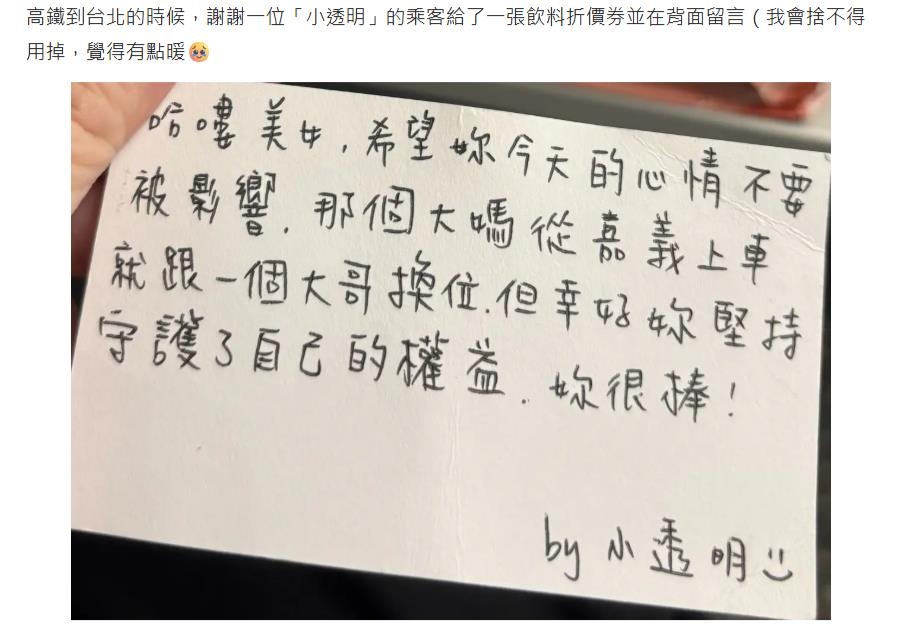 高鐵到台北的時候，謝謝一位「小透明」的乘客給了一張飲料折價券並在背面留言（我會捨不得
用掉，覺得有點暖🥹
哈嘍美女，希望妳今天的心情不要
被影響．那個大媽從嘉義上車
就跟一個大哥換位．但幸好妳堅持
守護了自己的權益．妳很棒！
by 小透明